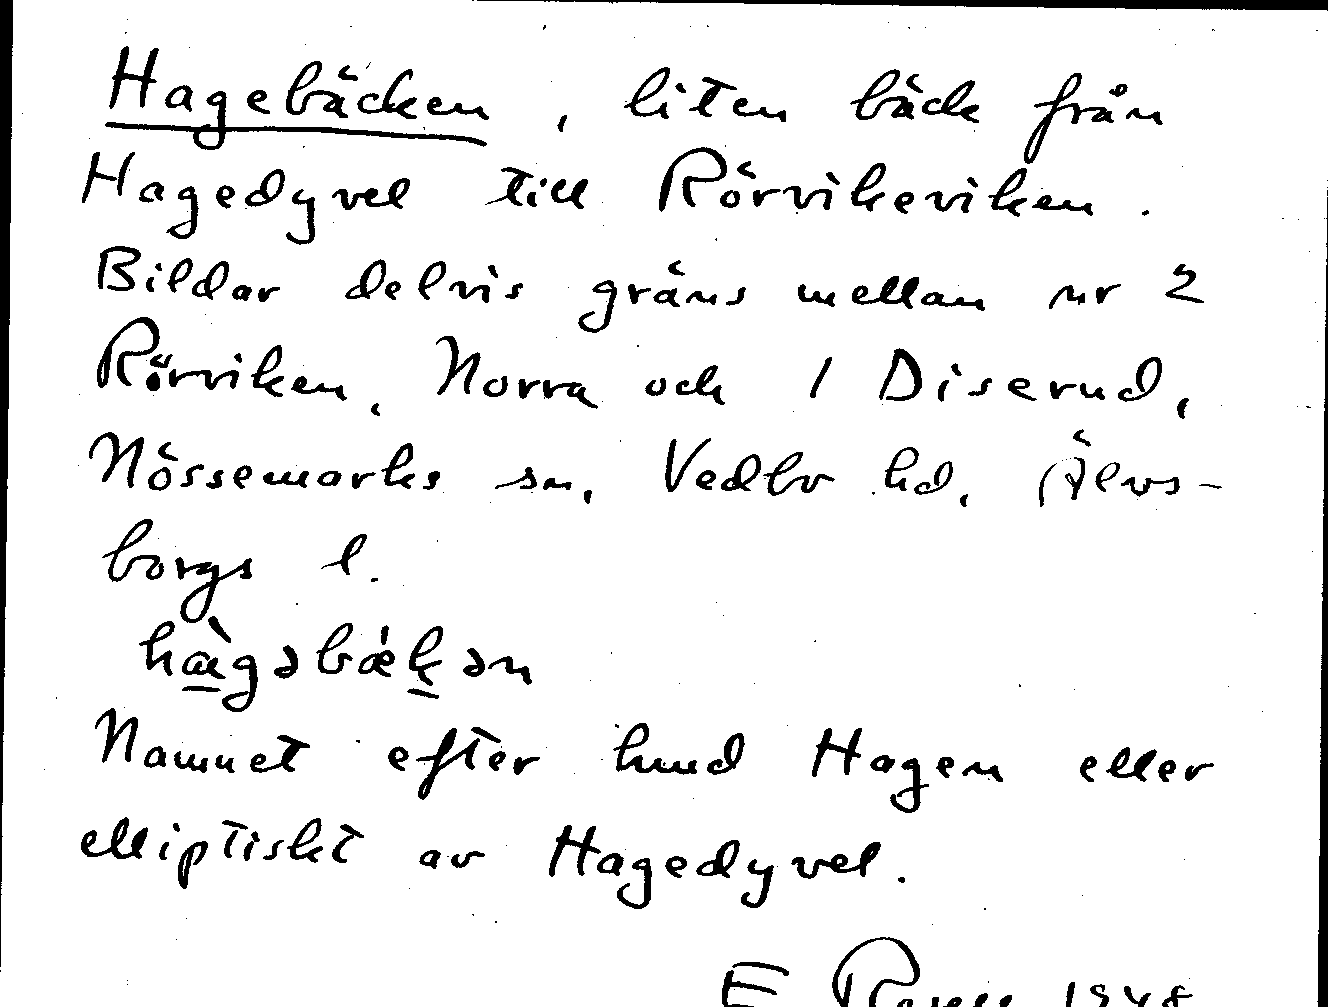 Hagebäcken, liten bäck från
Hagedyvel till Rörvikeviken.
Bildar delvis gräns mellan nr 2
Rörviken, Norra och 1 Diserud,
Nössemarks sn, Vedbo hd, Älvs-
borgs l.
Namnet efter hmd Hagen eller
elliptiskt av Hagedyvel.
E 1948